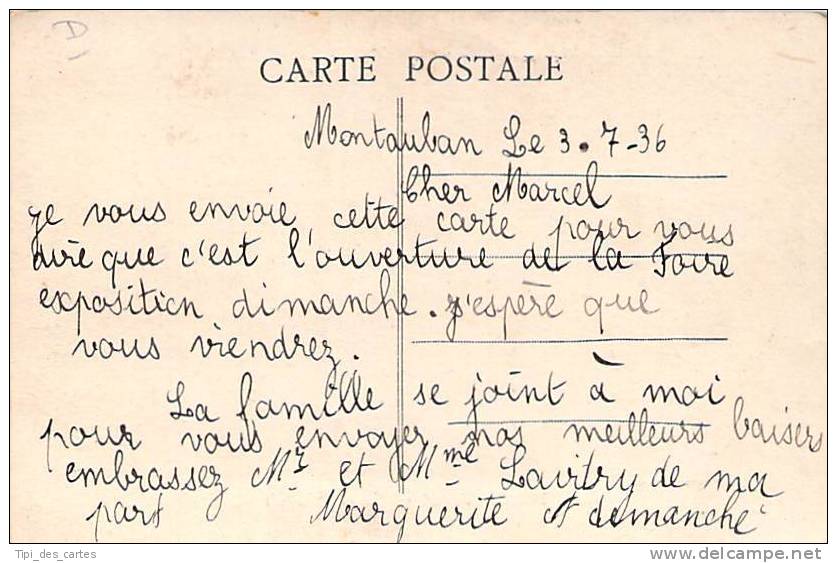 D
CARTE POSTALE
Montauban Le 3.7-36
Cher Marcel
je vous envoie cette carte pour vous
dire que c'est l'ouverture de la Foire
exposition dimanche. j'espère que
vous viendrez.
La famille se joint à moi
pour vous envoyer nos meilleurs baisers
embrassez Mr et Mme de ma
part Marguerite demanche
Tipi_des_cartes
www.delcampe.net